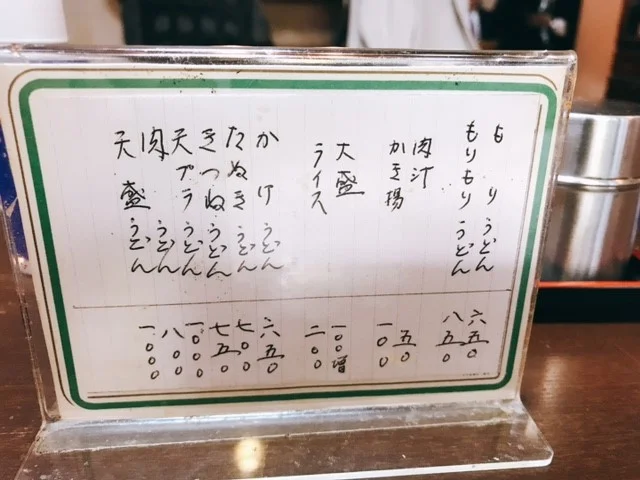 もり うどん 六五〇
もりもり うどん 八五〇
肉汁 五〇
かき揚 一〇〇
大盛 一〇〇増
ライス 二〇〇
かけ うどん 六五〇
たぬき うどん 七〇〇
きつね うどん 七五〇
天プラ うどん 一〇〇〇
肉 うどん 八〇〇
天盛 うどん 一〇〇〇